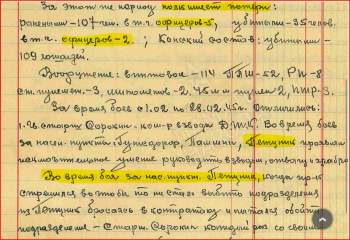 За этот же период полк имеет потери:
ранеными-107 чел. в т.ч. офицеров-5, убитыми-35 челов.
в т.ч. офицеров-2; Конский состав: убитыми-
109 лошадей.
Вооружение: винтовок-114 ППШ-52, РП-8
ст. пулемет.-3, минометов-2, 45 м/м пушек-2, ПТР-3.
За время боев с 1.02 по 28.02.45г. отличились:
1. Гв. старш Сорокин. ком-р взвода Во время боев
за насел. пункт: Пашкани, Петушик проявил
исключительное умение руководить взводом, отвагу и храбро
Во время боя за нас. пункт. Петушик, когда
во чтобы то не стало выбить подразделения
из Петушик бросаясь в контратаку и пытался обойти
подразделения - Старш. Сорокин который раз со своим